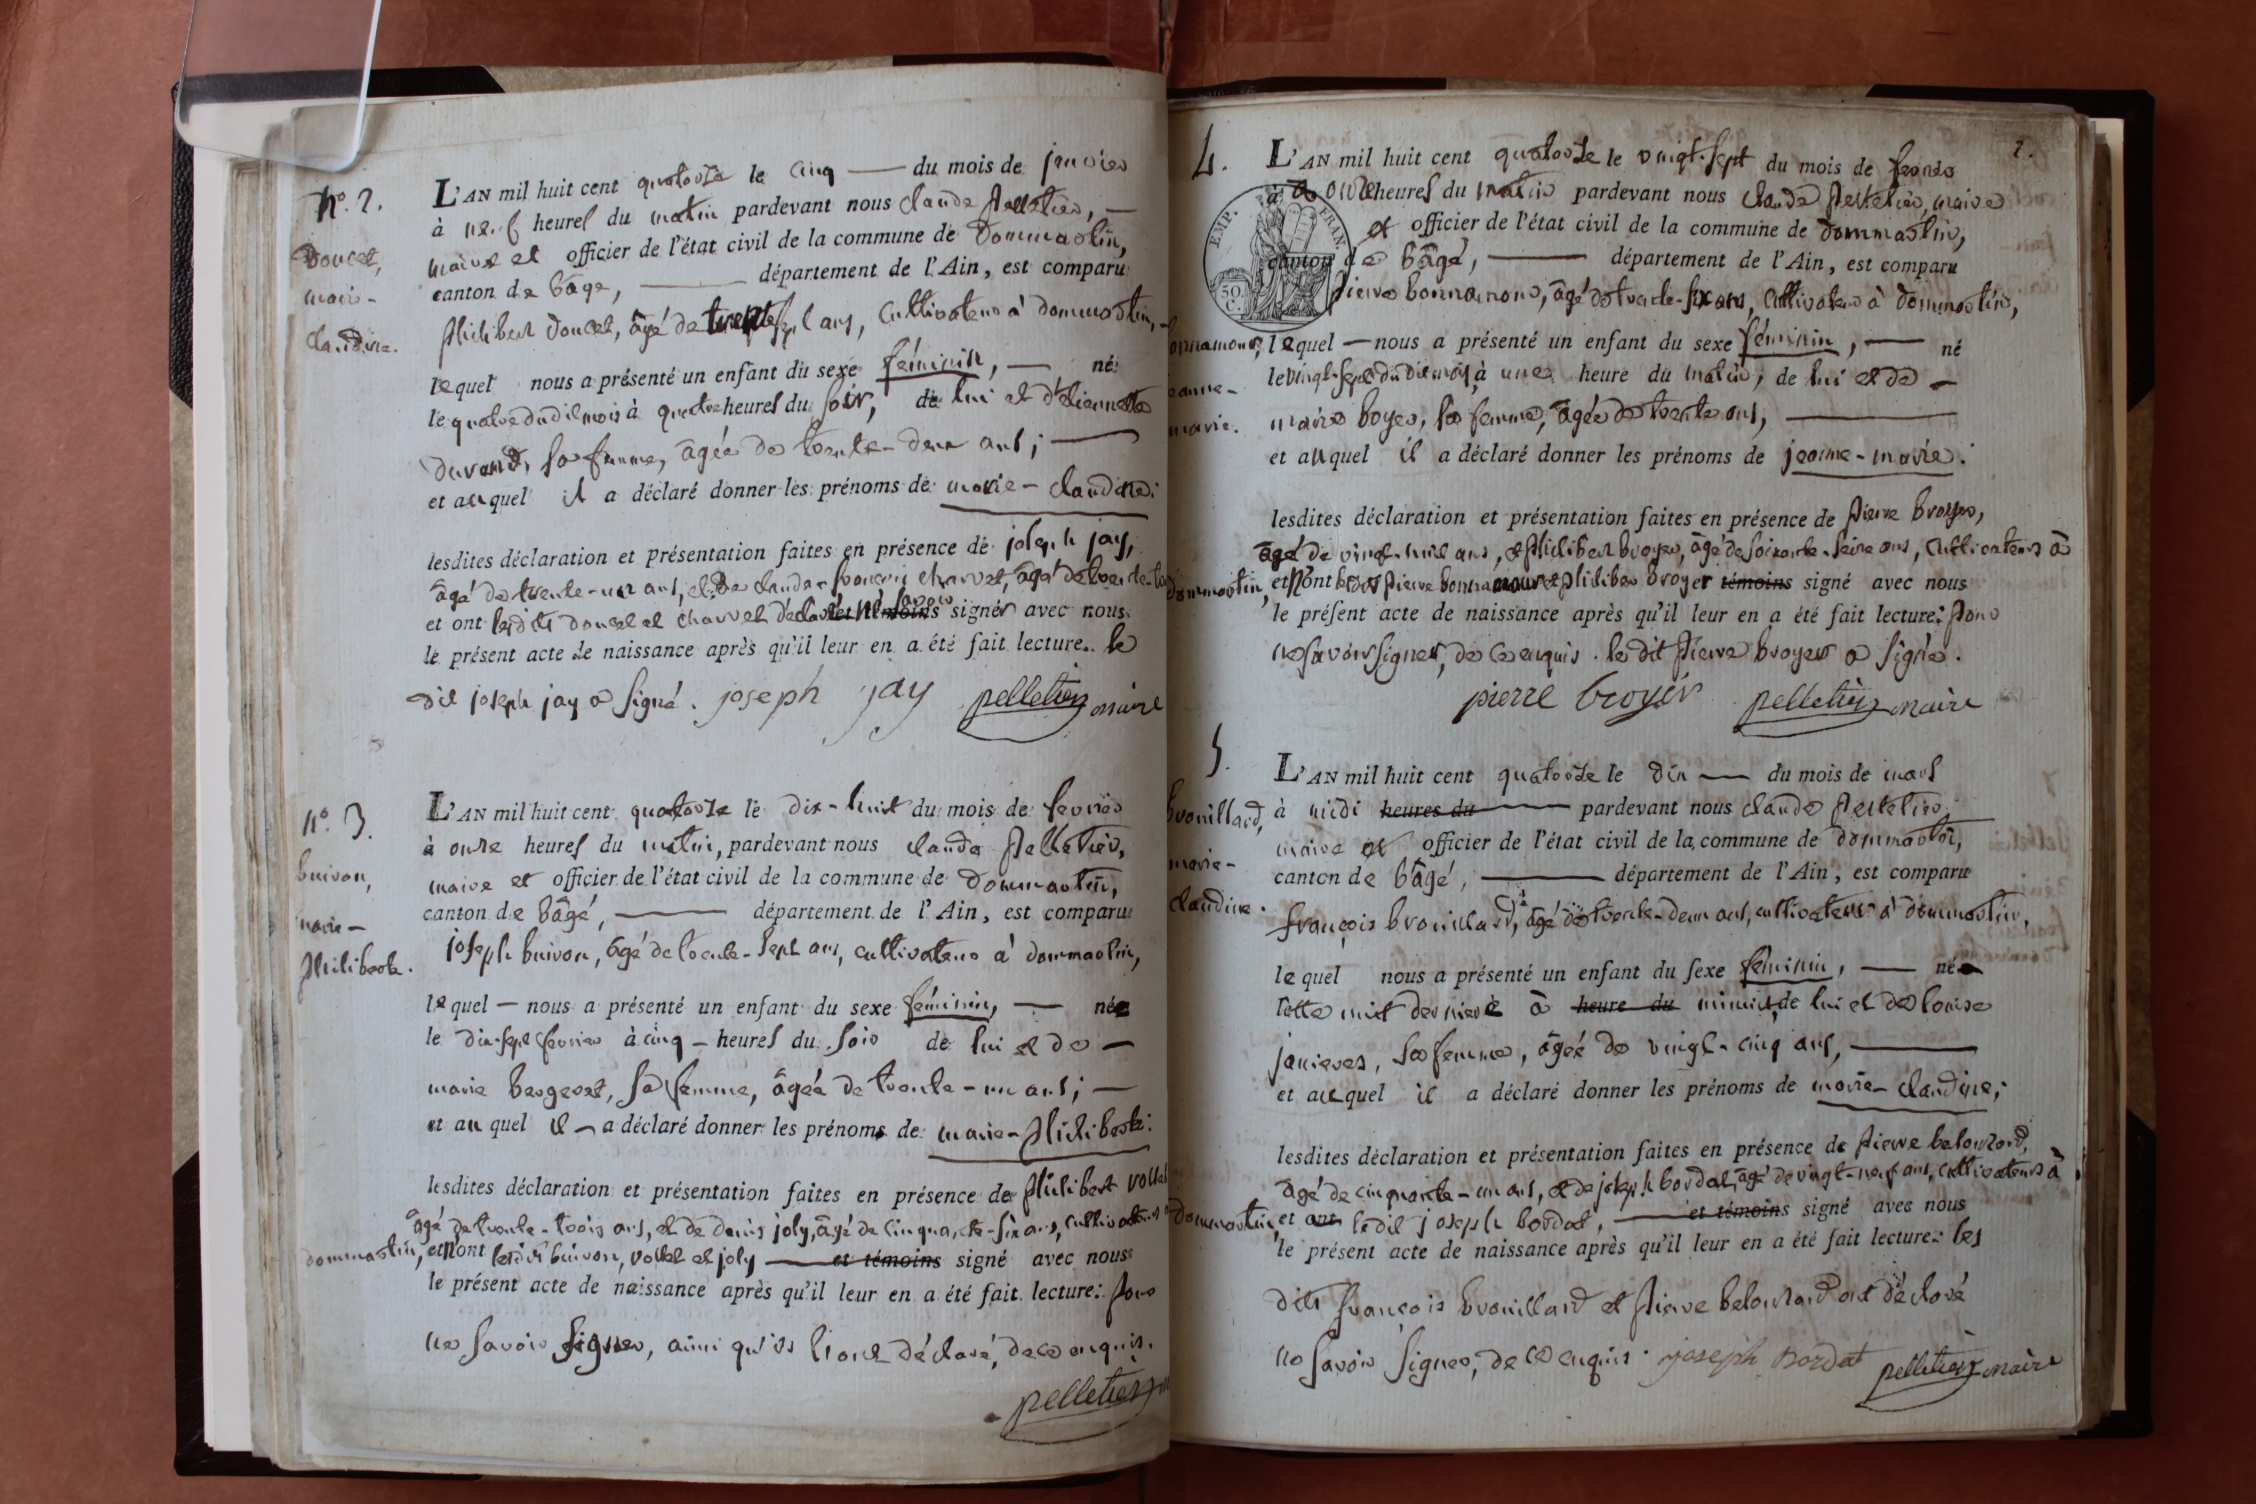 N.º 2.
Doucet,
marie-
claudine.
L'AN mil huit cent quatorze le cinq — du mois de janvier
à neuf heures du matin pardevant nous claude Pelletier, —
maire et officier de l'état civil de la commune de Dommartin,
canton de bâgé, — département de l'Ain, est comparu
Philibert Doucet, âgé de ans, cultivateur à dommartin,
lequel nous a présenté un enfant du sexe féminin, — né
le quatre du dit mois à quatre heures du soir, de lui et d'étiennette
durand, sa femme, âgée de trente-deux ans; —
et auquel il a déclaré donner les prénoms de marie-claudine:
lesdites déclaration et présentation faites en présence de joseph jay,
âgé de trente-un ans, et de claude-françois charvet, âgé de trente-
et ont lesdits doucet et charvet déclaré ne savoir et témoins signer avec nous
le présent acte de naissance après qu'il leur en a été fait lecture. le
dit joseph jay a signé. joseph jay pelletier maire
n.º 3.
buivon,
marie-
Philiberte.
L'AN mil huit cent quatorze le dix-huit du mois de fevrier
à onze heures du matin, pardevant nous claude Pelletier,
maire et officier de l'état civil de la commune de Dommartin,
canton de bâgé, — département de l'Ain, est comparu
joseph buivon, âgé de trente-sept ans, cultivateur à dommartin,
lequel — nous a présenté un enfant du sexe féminin, — née
le dix-sept fevrier à cinq — heures du soir de lui et de —
marie bergeret, sa femme, âgée de trente-un ans; —
et auquel il — a déclaré donner les prénoms de marie-Philiberte:
lesdites déclaration et présentation faites en présence de Philibert vollet
âgé de trente-trois ans, et de denis joly, âgé de cinquante-six ans, cultivateurs à
dommartin, et n'ont lesdits buivon, vollet et joly — et témoins signé avec nous
le présent acte de naissance après qu'il leur en a été fait lecture: pour
ne savoir signer, ainsi qu'ils l'ont déclaré, de ce enquis.
pelletier
2.
4.
bonnamour,
jeanne-
marie.
EMP. FRAN.
50 C.
L'AN mil huit cent quatorze le vingt-sept du mois de fevrier
à onze heures du matin pardevant nous claude Pelletier, maire
et officier de l'état civil de la commune de dommartin,
canton de bâgé, — département de l'Ain, est comparu
Pierre bonnamour, âgé de trente-six ans, cultivateur à dommartin,
lequel — nous a présenté un enfant du sexe féminin, — né
le vingt-sept du dit mois, à une heure du matin, de lui et de —
marie boyer, sa femme, âgée de trente ans, —
et auquel il a déclaré donner les prénoms de jeanne-marie:
lesdites déclaration et présentation faites en présence de Pierre broyer,
âgé de vingt-huit ans, et Philibert broyer, âgé de soixante-seize ans, cultivateurs à
dommartin, et n'ont lesdits Pierre bonnamour et philiber broyer témoins signé avec nous
le présent acte de naissance après qu'il leur en a été fait lecture: pour
ne savoir signer, de ce enquis. le dit Pierre broyer a signé.
pierre broyer pelletier maire
5.
brouillard,
marie-
claudine.
L'AN mil huit cent quatorze le dix — du mois de mars
à midi heures du — pardevant nous claude Pelletier,
maire et officier de l'état civil de la commune de dommartin,
canton de bâgé, — département de l'Ain, est comparu
françois brouillard, âgé de trente-deux ans, cultivateur à dommartin,
lequel nous a présenté un enfant du sexe féminin, — née
cette nuit derniere à heure du minuit, de lui et de louise
janieres, sa femme, âgée de vingt-cinq ans, —
et auquel il a déclaré donner les prénoms de marie-claudine;
lesdites déclaration et présentation faites en présence de Pierre belouzard,
âgé de cinquante-un ans, et de joseph bordat, âgé de vingt-neuf ans, cultivateurs à
dommartin, et ont ledit joseph bordat, — et témoins signé avec nous
le présent acte de naissance après qu'il leur en a été fait lecture: les
dits françois brouillard et Pierre belouzard ont déclaré
ne savoir signer, de ce enquis. joseph Bordat pelletier maire